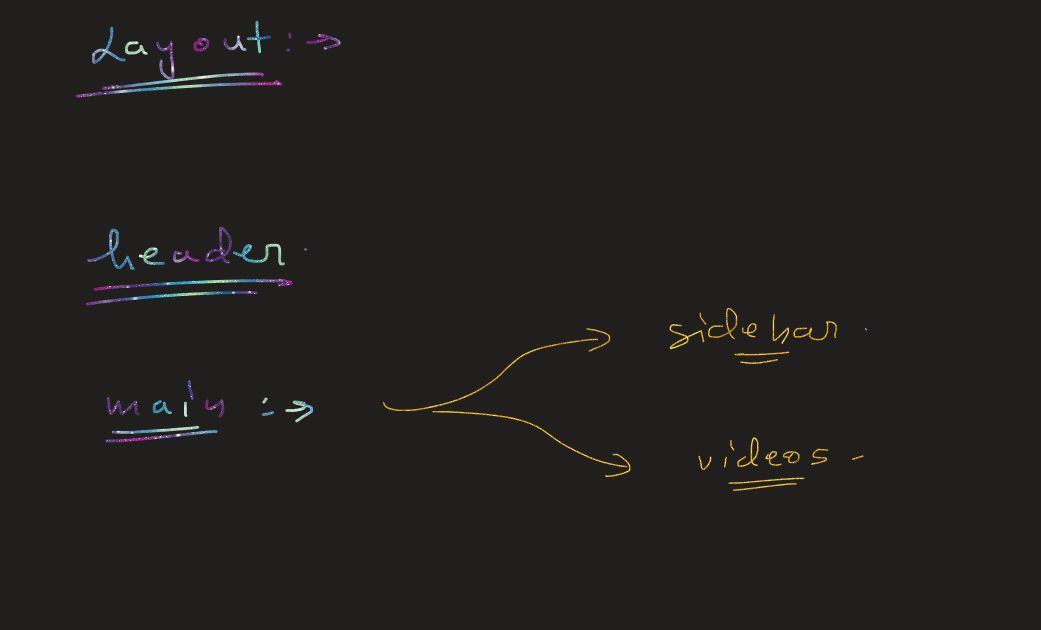 Layout :->
header.
main :->
sidebar.
videos -